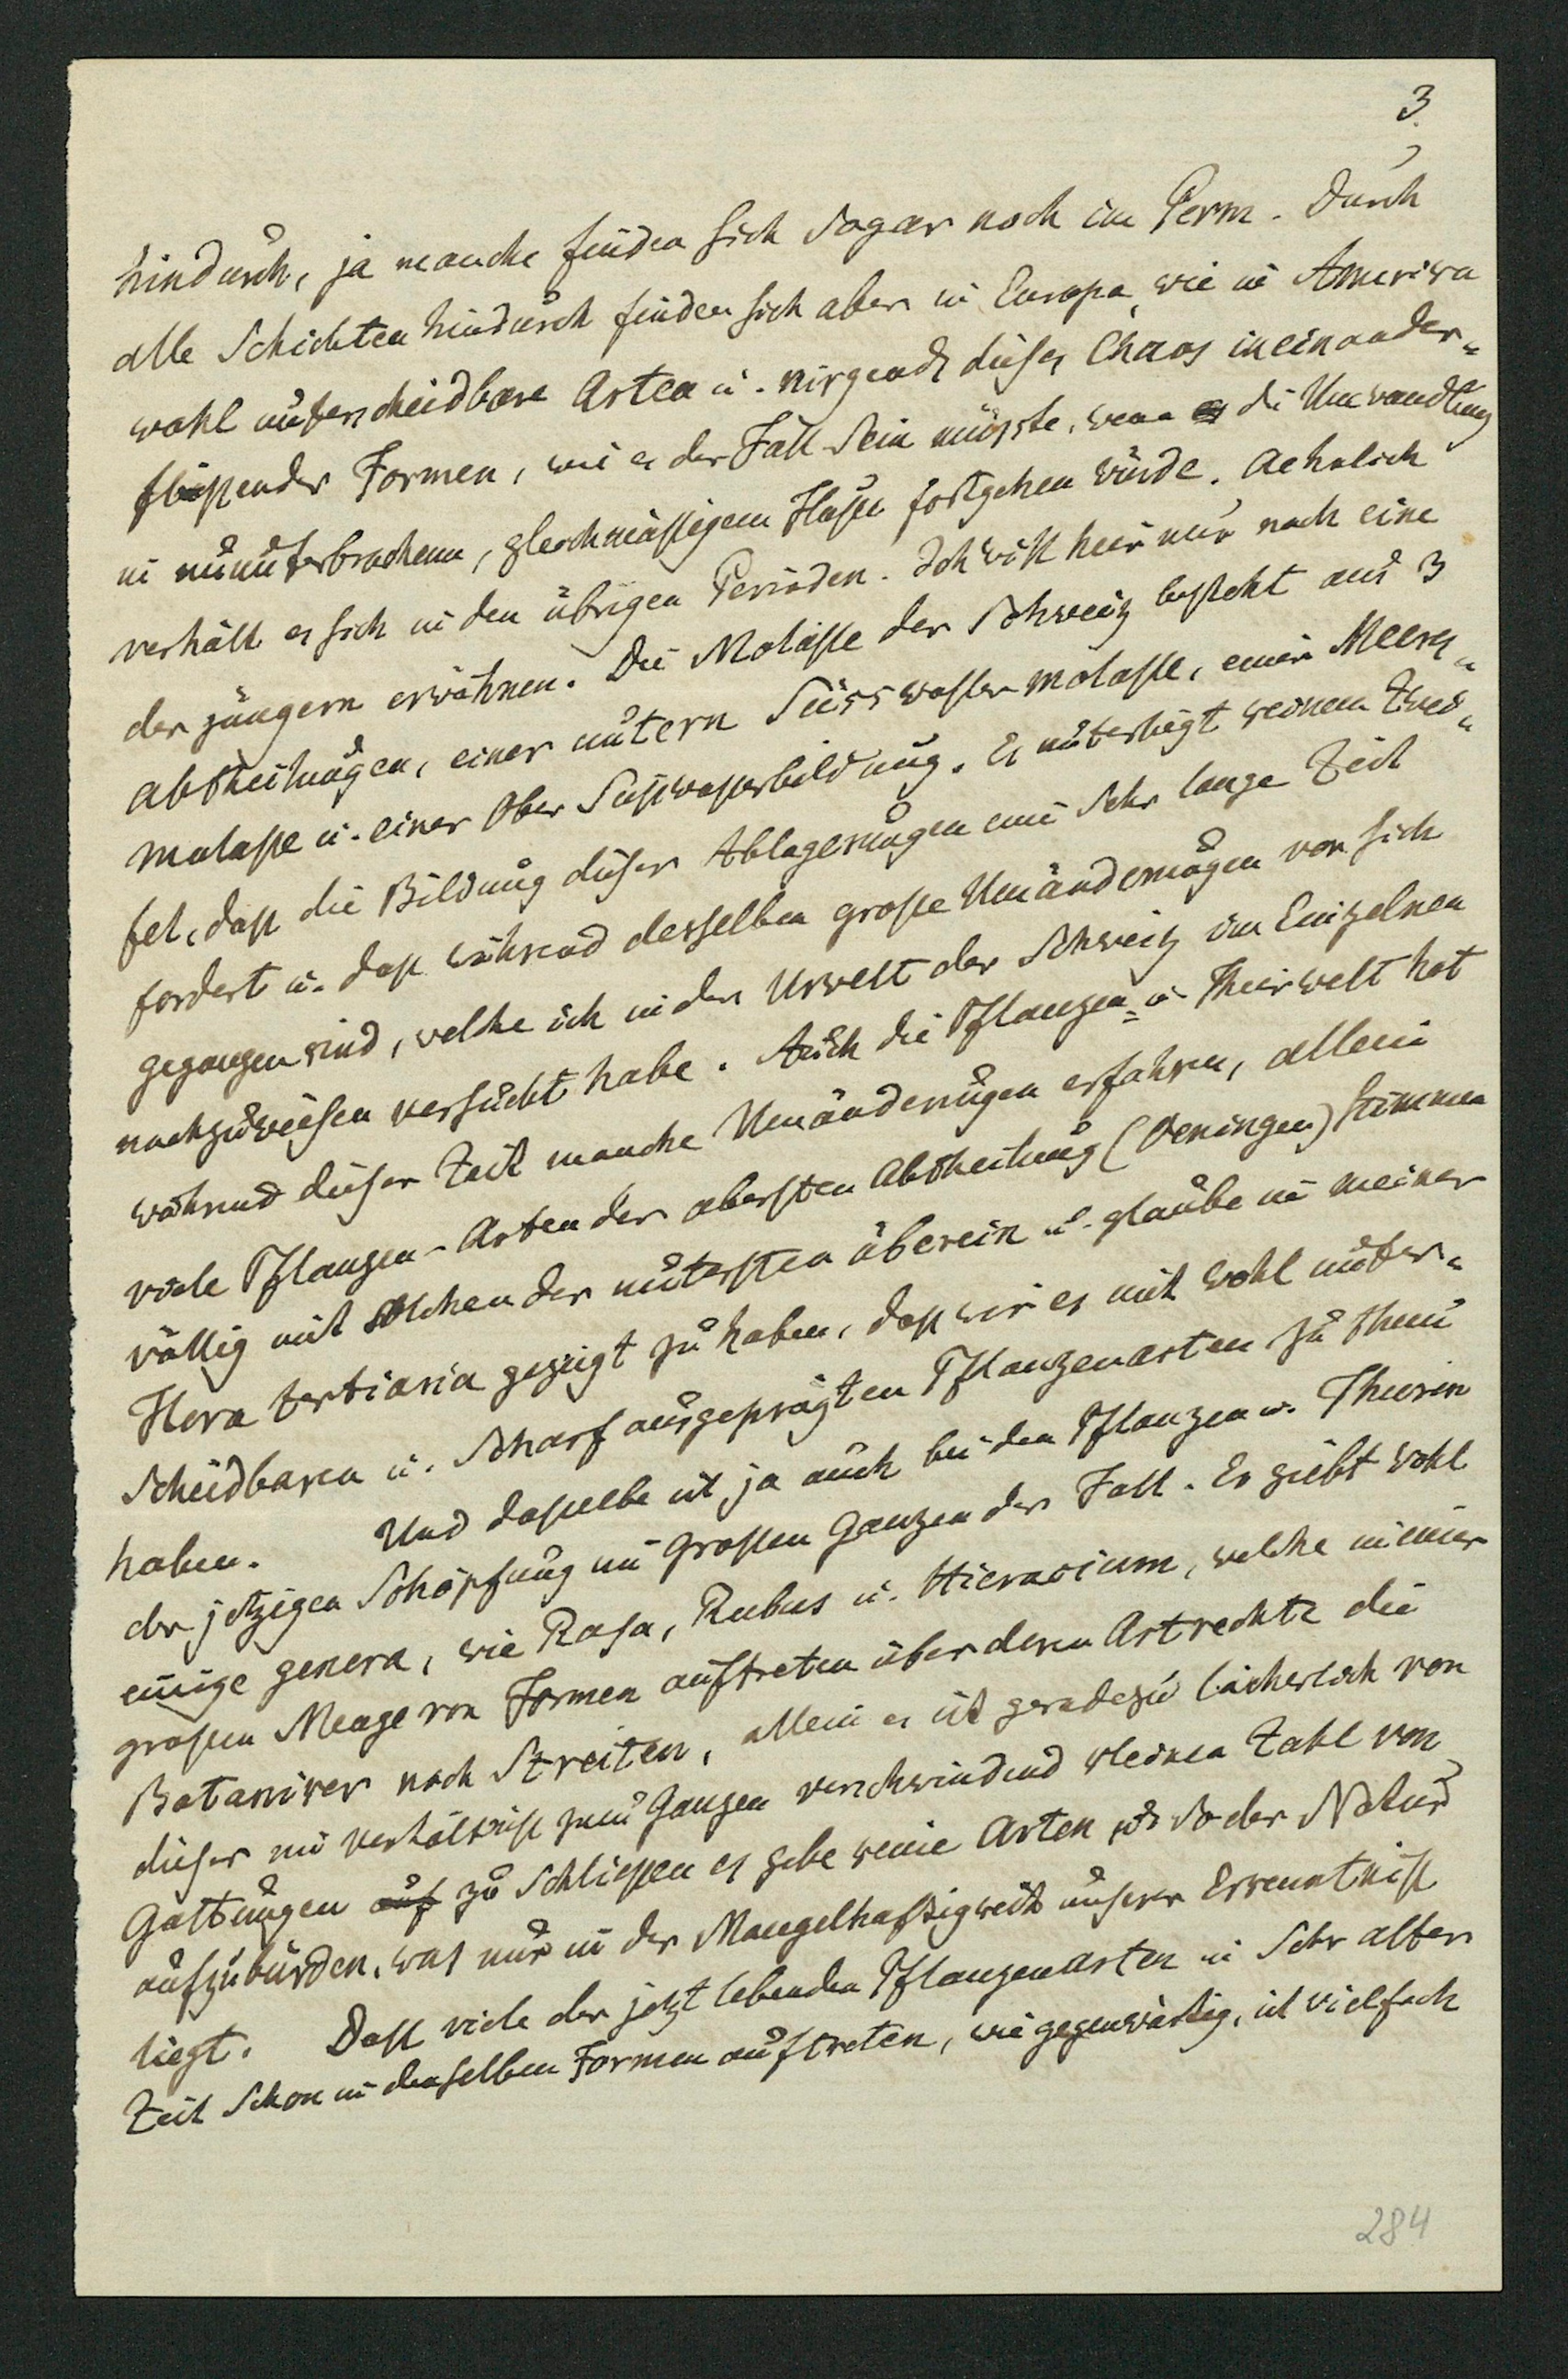 3
hindurch, ja manche finden sich sogar noch im Perm. Durch
alle Schichten hindurch finden sich aber in Europa, wie in Amerika
wohl unterscheidbare Arten u. nirgends dieses Chaos ineinander-
fliessender Formen, wie es der Fall sein müsste, wenn die Umwandlung
in ununterbrochenem, gleichmässigem Flusse fortgehen würde. Aehnlich
verhält es sich in den übrigen Perioden. Ich will hier nur noch eine
der jüngern erwähnen. Die Molasse der Schweiz besteht aus 3
Abtheilungen, einer untern Süsswassermolasse, einer Meeres-
molasse u. einer Ober Süsswasserbildung. Es unterliegt keinem Zwei-
fel, dass die Bildung dieser Ablagerungen eine sehr lange Zeit
fordert u. dass während derselben grosse Umänderungen vor sich
gegangen sind, welche ich in der Urwelt der Schweiz im Einzelnen
nachzuweisen versucht habe. Auch die Pflanzen- u Thierwelt hat
während dieser Zeit manche Umänderungen erfahren, allein
viele Pflanzen-Arten der obersten Abtheilung (Oeningen) stimmen
völlig mit solchen der untersten überein u. glaube in meiner
Flora tertiaria gezeigt zu haben, dass wir es mit wohl unter-
scheidbaren u. scharf ausgeprägten Pflanzenarten zu thun
haben. Und dasselbe ist ja auch bei den Pflanzen u. Thieren
der jetzigen Schöpfung im Grossen Ganzen der Fall. Es giebt wohl
einige genera, wie Rosa, Rubus u. Hieracium, welche in einer
grossen Menge von Formen auftreten über deren Artrechte die
Botaniker noch streiten, allein es ist geradezu lächerlich von
dieser im Verhältniss zum Ganzen verschwindend kleinen Zahl von
Gattungen auf zu schliessen es gebe keine Arten u. so der Natur
aufzubürden, was nur in der Mangelhaftigkeit unserer Erkenntniss
liegt. Dass viele der jetzt lebenden Pflanzenarten in sehr alter
Zeit schon in denselben Formen auftreten, wie gegenwärtig, ist vielfach
284